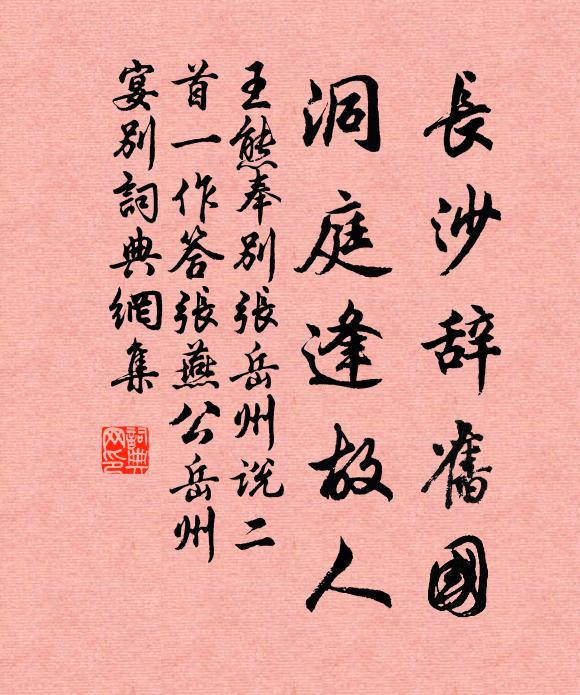 長沙辞舊國
洞庭逢故人
王熊奉別張岳州说二
首一作答張燕公岳州
宴別詞典網集
詞典網印